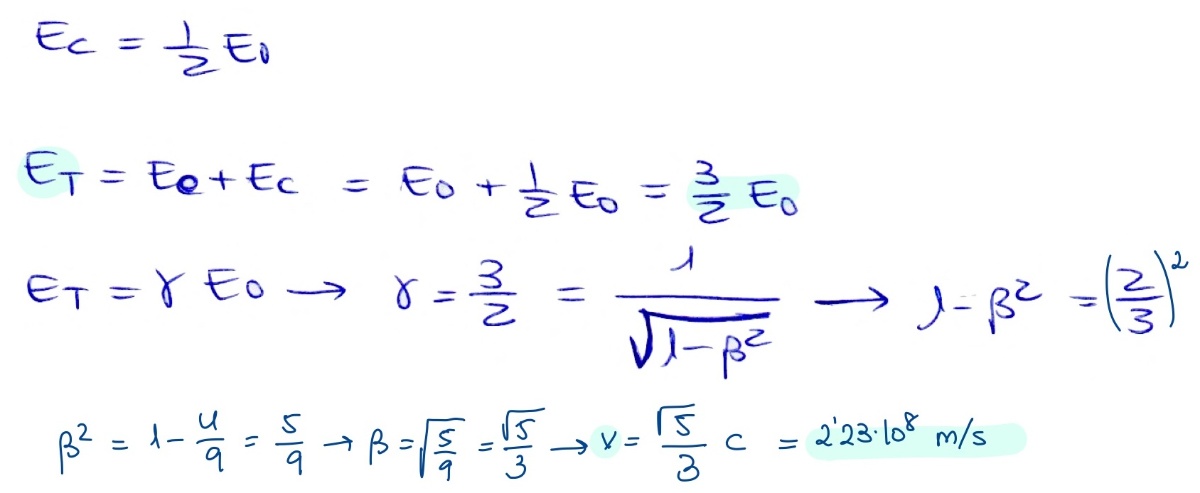 Ec = 1/2 E0
ET = E0 + Ec = E0 + 1/2 E0 = 3/2 E0
ET = γ E0 → γ = 3/2 = 1/√(1-β²) → 1-β² = (2/3)²
β² = 1 - 4/9 = 5/9 → β = √(5/9) = √5/3 → v = √5/3 c = 2'23·10⁸ m/s